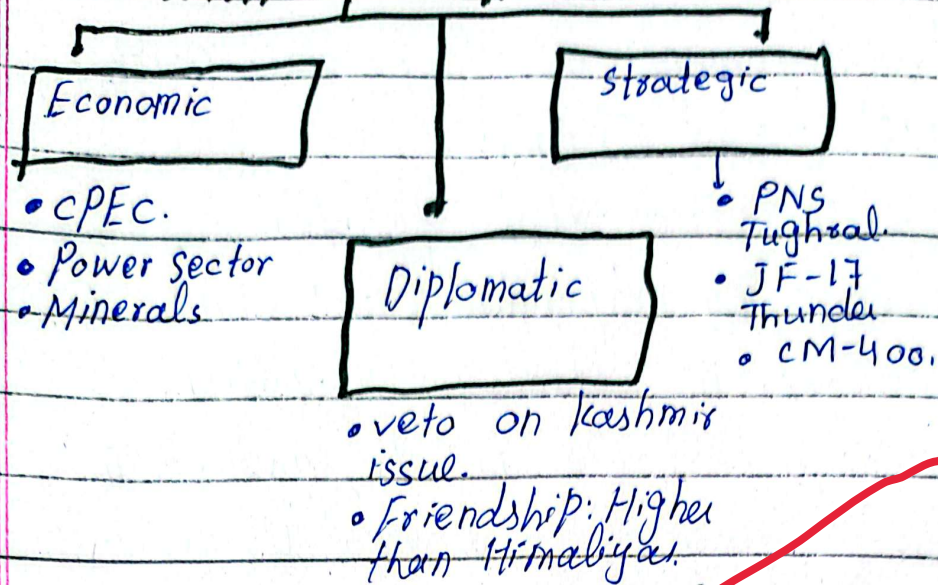 Economic
• CPEC.
• Power sector
• Minerals
Diplomatic
• veto on Kashmir
issue.
• Friendship: Higher
than Himaliyas.
Strategic
• PNS
Tughral.
• JF-17
Thunder
• CM-400.